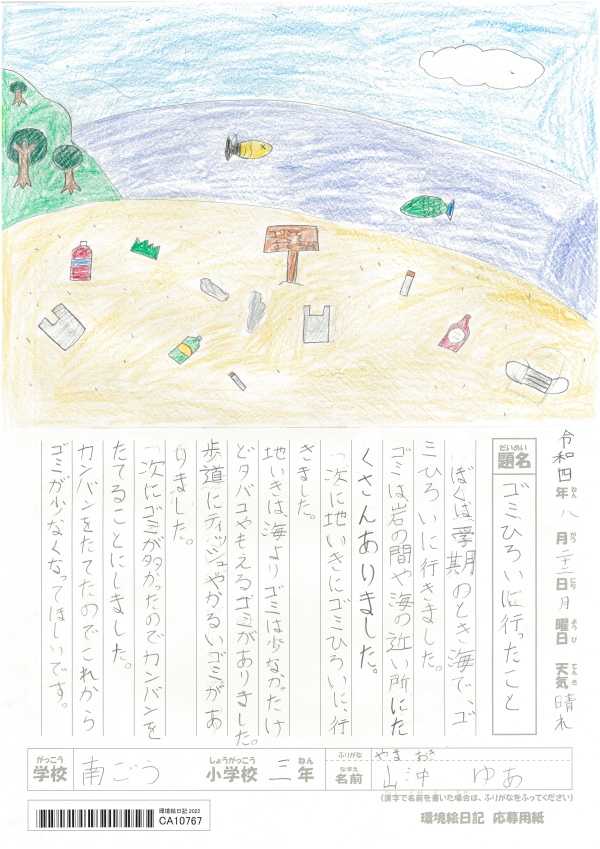 令和四年八月二十二日月曜日 天気晴れ
ねん がつ にち よう び てん き
だいめい
題名
ゴミひろいに行ったこと
ぼくは、学期のとき海で、ゴ
ミひろいに行きました。
ゴミは岩の間や海の近い所にた
くさんありました。
次に地いきにゴミひろいに、行
きました。
地いきは、海よりゴミは少なかったけ
どタバコやもえるゴミがありました。
歩道にティッシュやかるいゴミがあ
りました。
次にゴミが多かったのでカンバンを
たてることにしました。
カンバンをたてたのでこれから
ゴミが少なくなってほしいです。
がっこう しょうがっこう ねん
学校 南ごう 小学校 三年
ふりがな やま おき
なまえ
名前 山沖 ゆあ
(漢字で名前を書いた場合は、ふりがなをふってください)
環境絵日記 2022
CA10767
環境絵日記 応募用紙